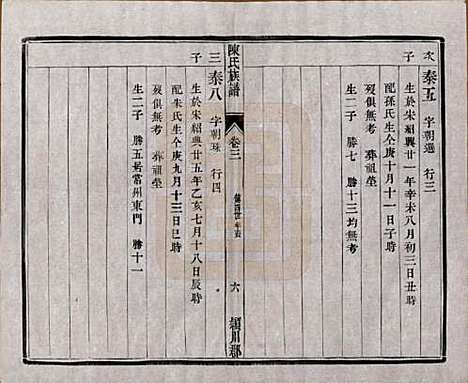 次子
泰五 字朝選 行三
生於宋紹興廿一年辛未八月初三日丑時
配孫氏生仝庚十月十一日子時
歿俱無考 葬祖塋
生二子 勝七 勝十三均無考
陳氏族譜
卷三
六
潁川郡
三子
泰八 字朝珠 行四
生於宋紹興廿五年乙亥七月十八日辰時
配朱氏生仝庚九月十三日巳時
歿俱無考 葬祖塋
生二子 勝五居常州東門 勝十一